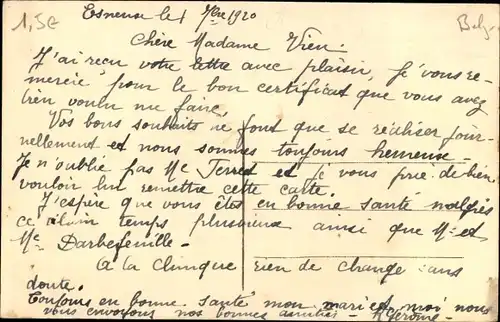 1,5€
Belg
Esneux le 1 7bre 1920
Chère Madame Vien.
J'ai reçu votre lettre avec plaisir, je vous re-
mercie pour le bon certificat que vous avez
bien voulu me faire.
Vos bons souhaits ne font que se réaliser jour-
nellement et nous sommes toujours heureuse -
Je n'oublie pas Me et je vous prie de bien
vouloir lui remettre cette carte.
J'espère que vous êtes en bonne santé malgrés
ce vilain temps pluvieux ainsi que Mr et
Me
A la Clinique rien de change sans
doute.
Toujours en bonne santé mon mari et moi nous
vous envoyons nos bonnes amitiés -